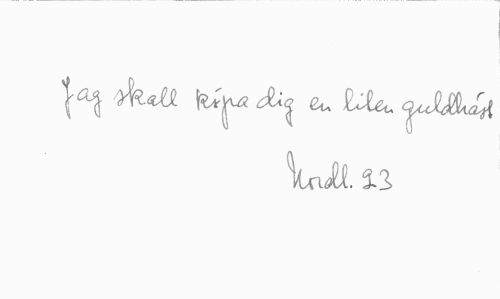 Jag skall köpa dig en liten guldhäst
Nordl. 23